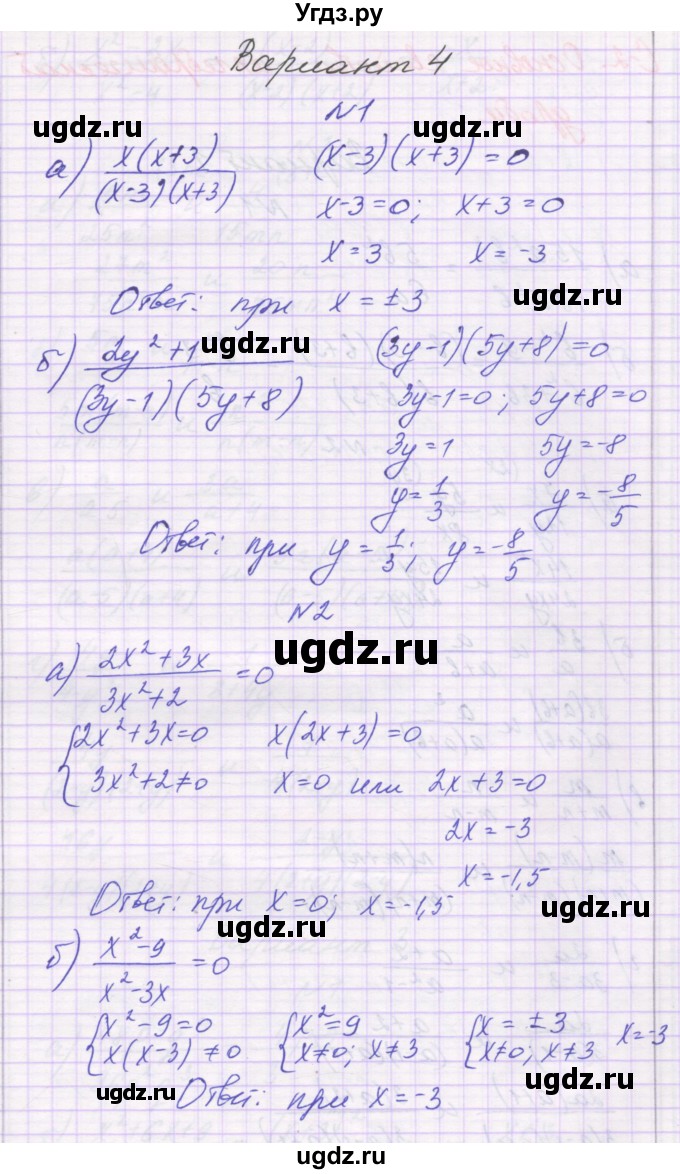 Угдз.ру
Вариант 4
N1
ugdz.ru ugdz.ru
а) x(x+3)/((x-3)(x+3)) (x-3)(x+3)=0
x-3=0; x+3=0
x=3 x=-3
Ответ: при x=±3 ugdz.ru
б) (2y²+1)/((3y-1)(5y+8)) ugdz.ru (3y-1)(5y+8)=0
3y-1=0; 5y+8=0
3y=1 5y=-8
y=1/3 y=-8/5
Ответ: при y=1/3; y=-8/5
N2
ugdz.ru
а) (2x²+3x)/(3x²+2)=0
{2x²+3x=0 x(2x+3)=0
{3x²+2≠0 x=0 или 2x+3=0
2x=-3
x=-1,5
Ответ: при x=0; x=-1,5
ugdz.ru ugdz.ru
б) (x²-9)/(x²-3x)=0
{x²-9=0 {x²=9 {x=±3 x=-3
{x(x-3)≠0 {x≠0; x≠3 {x≠0; x≠3
ugdz.ru Ответ: при x=-3 ugdz.ru
ugdz.ru